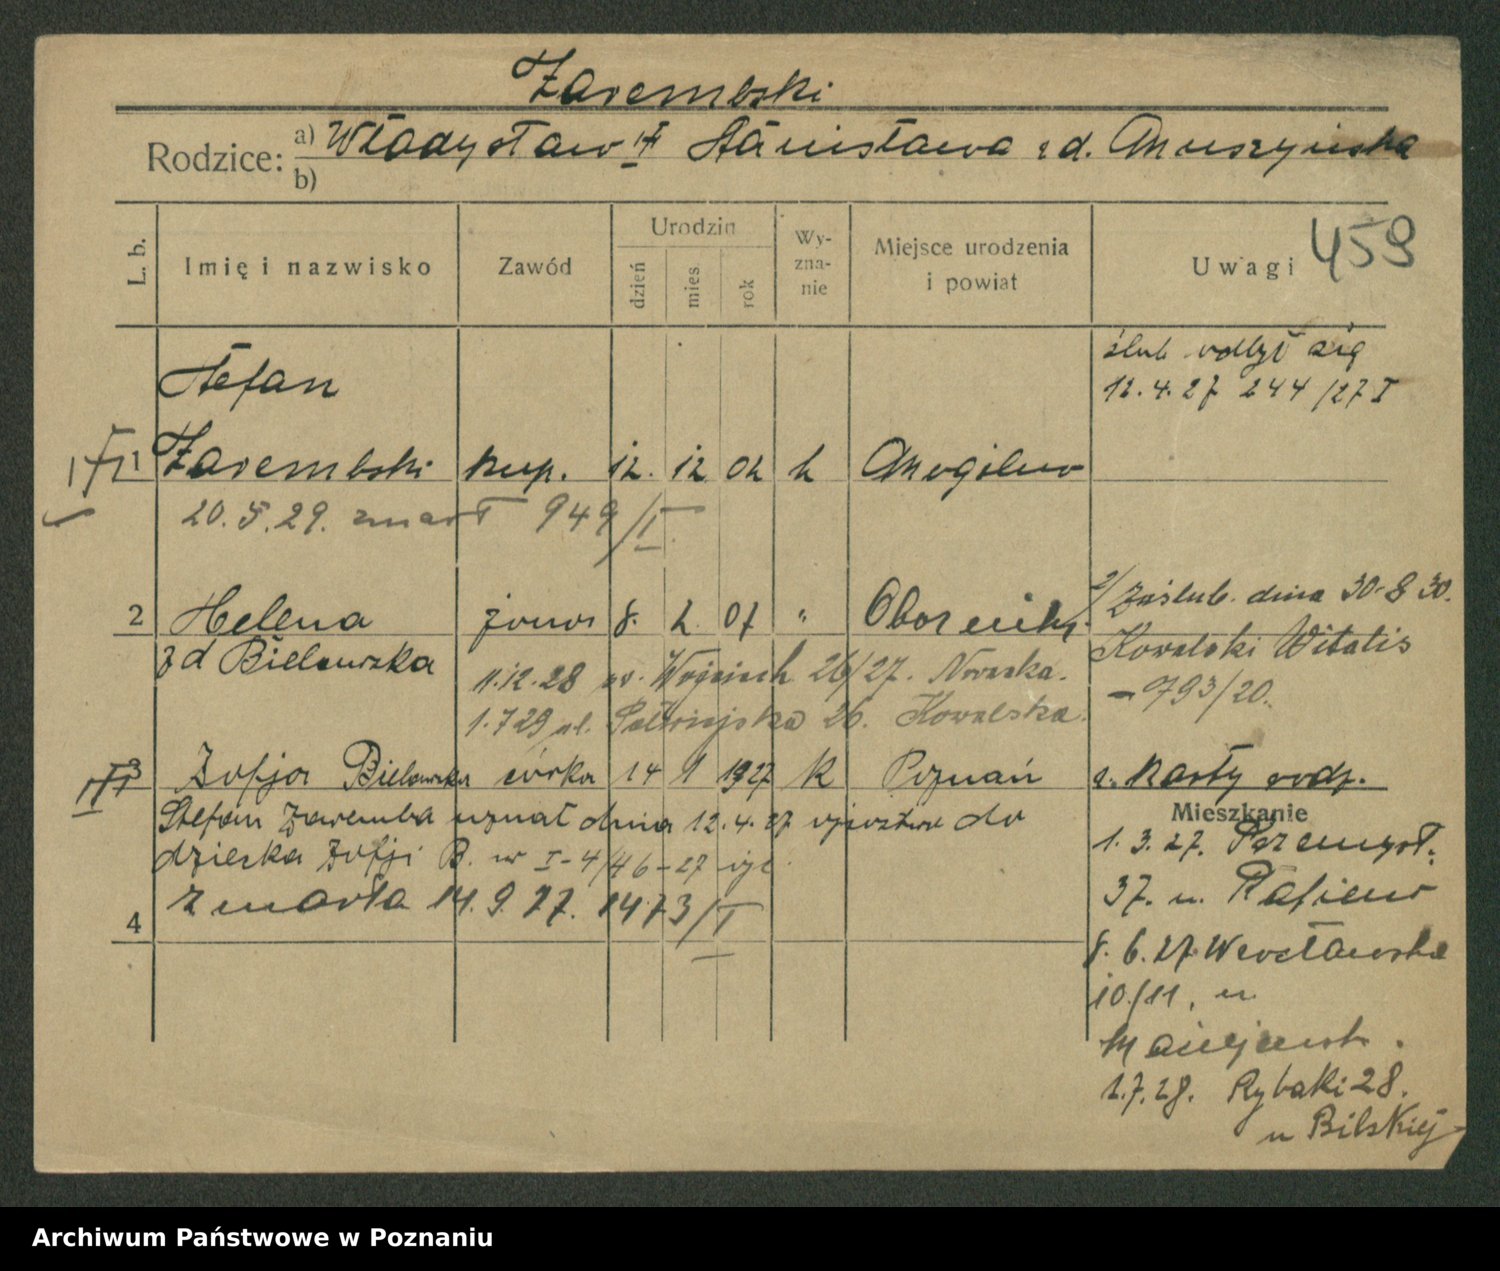 Zarembski
Rodzice: a) Władysław Stanisława z d. Muszyńska
b)
L. b.
Imię i nazwisko
Zawód
Urodzin
dzień
mies.
rok
Wy-
zna-
nie
Miejsce urodzenia
i powiat
Uwagi
459
ślub odbył się
12.4.27 244/27 I
Stefan
1 Zarembski kup. 12. 12 02 k Mogilno
20.5.29. zmarł 949/I
2 Helena żona 8. 2. 07 " Oborniki
2/ zaślub. dnia 30.8 30.
Kowalski Witalis
– 793/20.
z d Bielawska
11.12.28 św. Wojciech 26/27. Nowacka.
1.7 29 ul. 26. Kowalska
3 Zofja Bielawska córka 14 1 1927 k Poznań
z. karty rodz.
Stefan Zaremba uznał dnia 12.4.27 ojcostwo do
dziecka Zofji B. w I-4/46-27
4 zmarła 14.9.27. 1473/I
Mieszkanie
1.3.27. Przemysł.
37. u.
8.6.27 Wrocławska
10/11, u
Maciejewsk.
1.7.28. Rybaki 28.
u Bilskiej
Archiwum Państwowe w Poznaniu